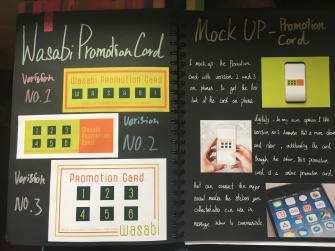 Wasabi Promotion Card
Verision
NO.1
Wasabi Promotion Card
W A S A B I
1 2 3
4 5 6
Wasabi
Promotion
Card
Verision
NO.2
Verision
NO.3
Promotion Card
1 2 3
4 5 6
wasabi
MOCK UP - Promotion
Card
I mock up the Promotion
Card with version 2 and 3
on phone to get the best
look of the card on phone.
digitaly. In my own opinion I like
version no.3 because that a more clean
and color, outstanding the card
though the other, this promotion
card is a online promotion card
that can connect the major
social media the stickers you
collectable can use in
message when to communicate.